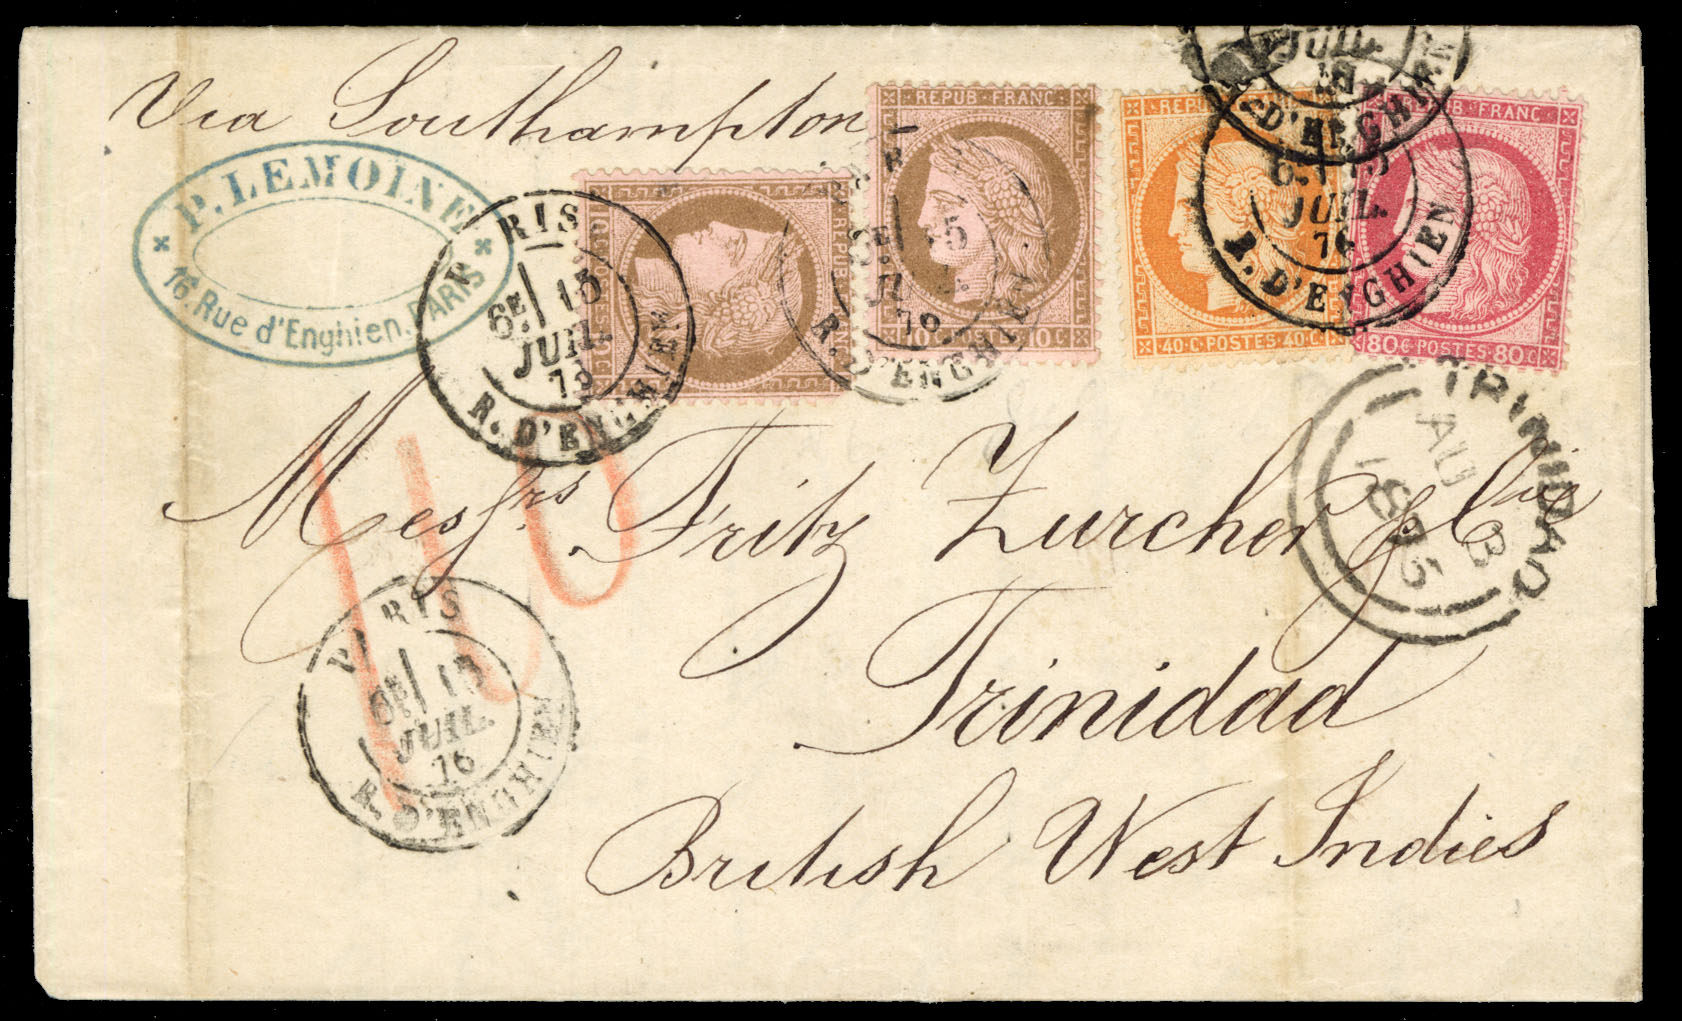 Via Southampton
P. LEMOINE
16, Rue d'Enghien, PARIS
PARIS
6E 15
JUIL.
76
R. D'ENGHIEN
REPUB. FRANC.
10 C. POSTES 10 C.
REPUB. FRANC.
10 C. POSTES 10 C.
6E 15
R. D'ENGHIEN
JUIL.
D'ENGHIEN
REPUB
40 C. POSTES 40 C.
REPUB. FRANC.
80 C. POSTES 80 C.
6E 15
JUIL.
76
R. D'ENGHIEN
TRINIDAD
AU B
1876
110
Messrs Fritz Zurcher & Cie
Trinidad
British West Indies
PARIS
6E 15
JUIL.
76
R. D'ENGHIEN